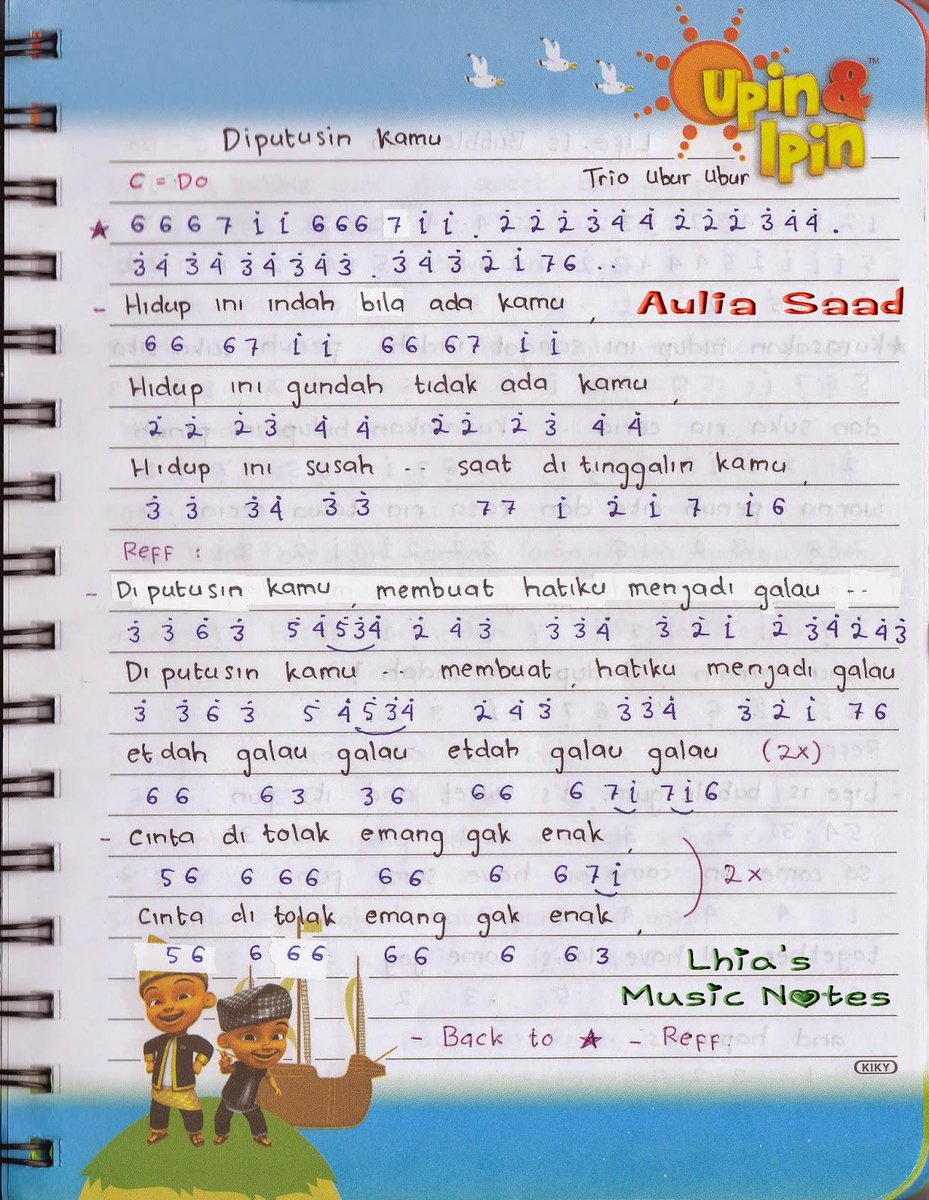 Upin & Ipin ™
Diputusin Kamu
C = Do Trio Ubur Ubur
★ 6 6 6 7 1̇ 1̇ 6 6 6 7 1̇ 1̇ . 2̇ 2̇ 2̇ 3̇ 4̇ 4̇ 2̇ 2̇ 2̇ 3̇ 4̇ 4̇ .
3̇ 4̇ 3̇ 4̇ 3̇ 4̇ 3̇ 4̇ 3̇ . 3̇ 4̇ 3̇ 2̇ 1̇ 7 6 . .
- Hidup ini indah bila ada kamu, Aulia Saad
6 6 6 7 1̇ 1̇ 6 6 6 7 1̇ 1̇
Hidup ini gundah tidak ada kamu,
2̇ 2̇ 2̇ 3̇ 4̇ 4̇ 2̇ 2̇ 2̇ 3̇ 4̇ 4̇
Hidup ini susah .. saat di tinggalin kamu,
3̇ 3̇ 3̇ 4̇ 3̇ 3̇ 7 7 1̇ 2̇ 1̇ 7 1̇ 6
Reff :
- Diputusin kamu, membuat hatiku menjadi galau ..
3̇ 3̇ 6̇ 3̇ 5̇ 4̇ 5̇ 3̇ 4̇ 2̇ 4̇ 3̇ 3̇ 3̇ 4̇ 3̇ 2̇ 1̇ 2̇ 3̇ 4̇ 2̇ 4̇ 3̇
Di putusin kamu .. membuat, hatiku menjadi galau
3̇ 3̇ 6̇ 3̇ 5̇ 4̇ 5̇ 3̇ 4̇ 2̇ 4̇ 3̇ 3̇ 3̇ 4̇ 3̇ 2̇ 1̇ 7 6
etdah galau galau etdah galau galau (2x)
6 6 6 3 3 6 6 6 6 7 1̇ 7 1̇ 6
- Cinta di tolak emang gak enak,
5 6 6 6 6 6 6 6 6 7 1̇ 2x
Cinta di tolak emang gak enak,
5 6 6 6 6 6 6 6 6 3
Lhia's
Music Notes
- Back to ★ - Reff.
KIKY